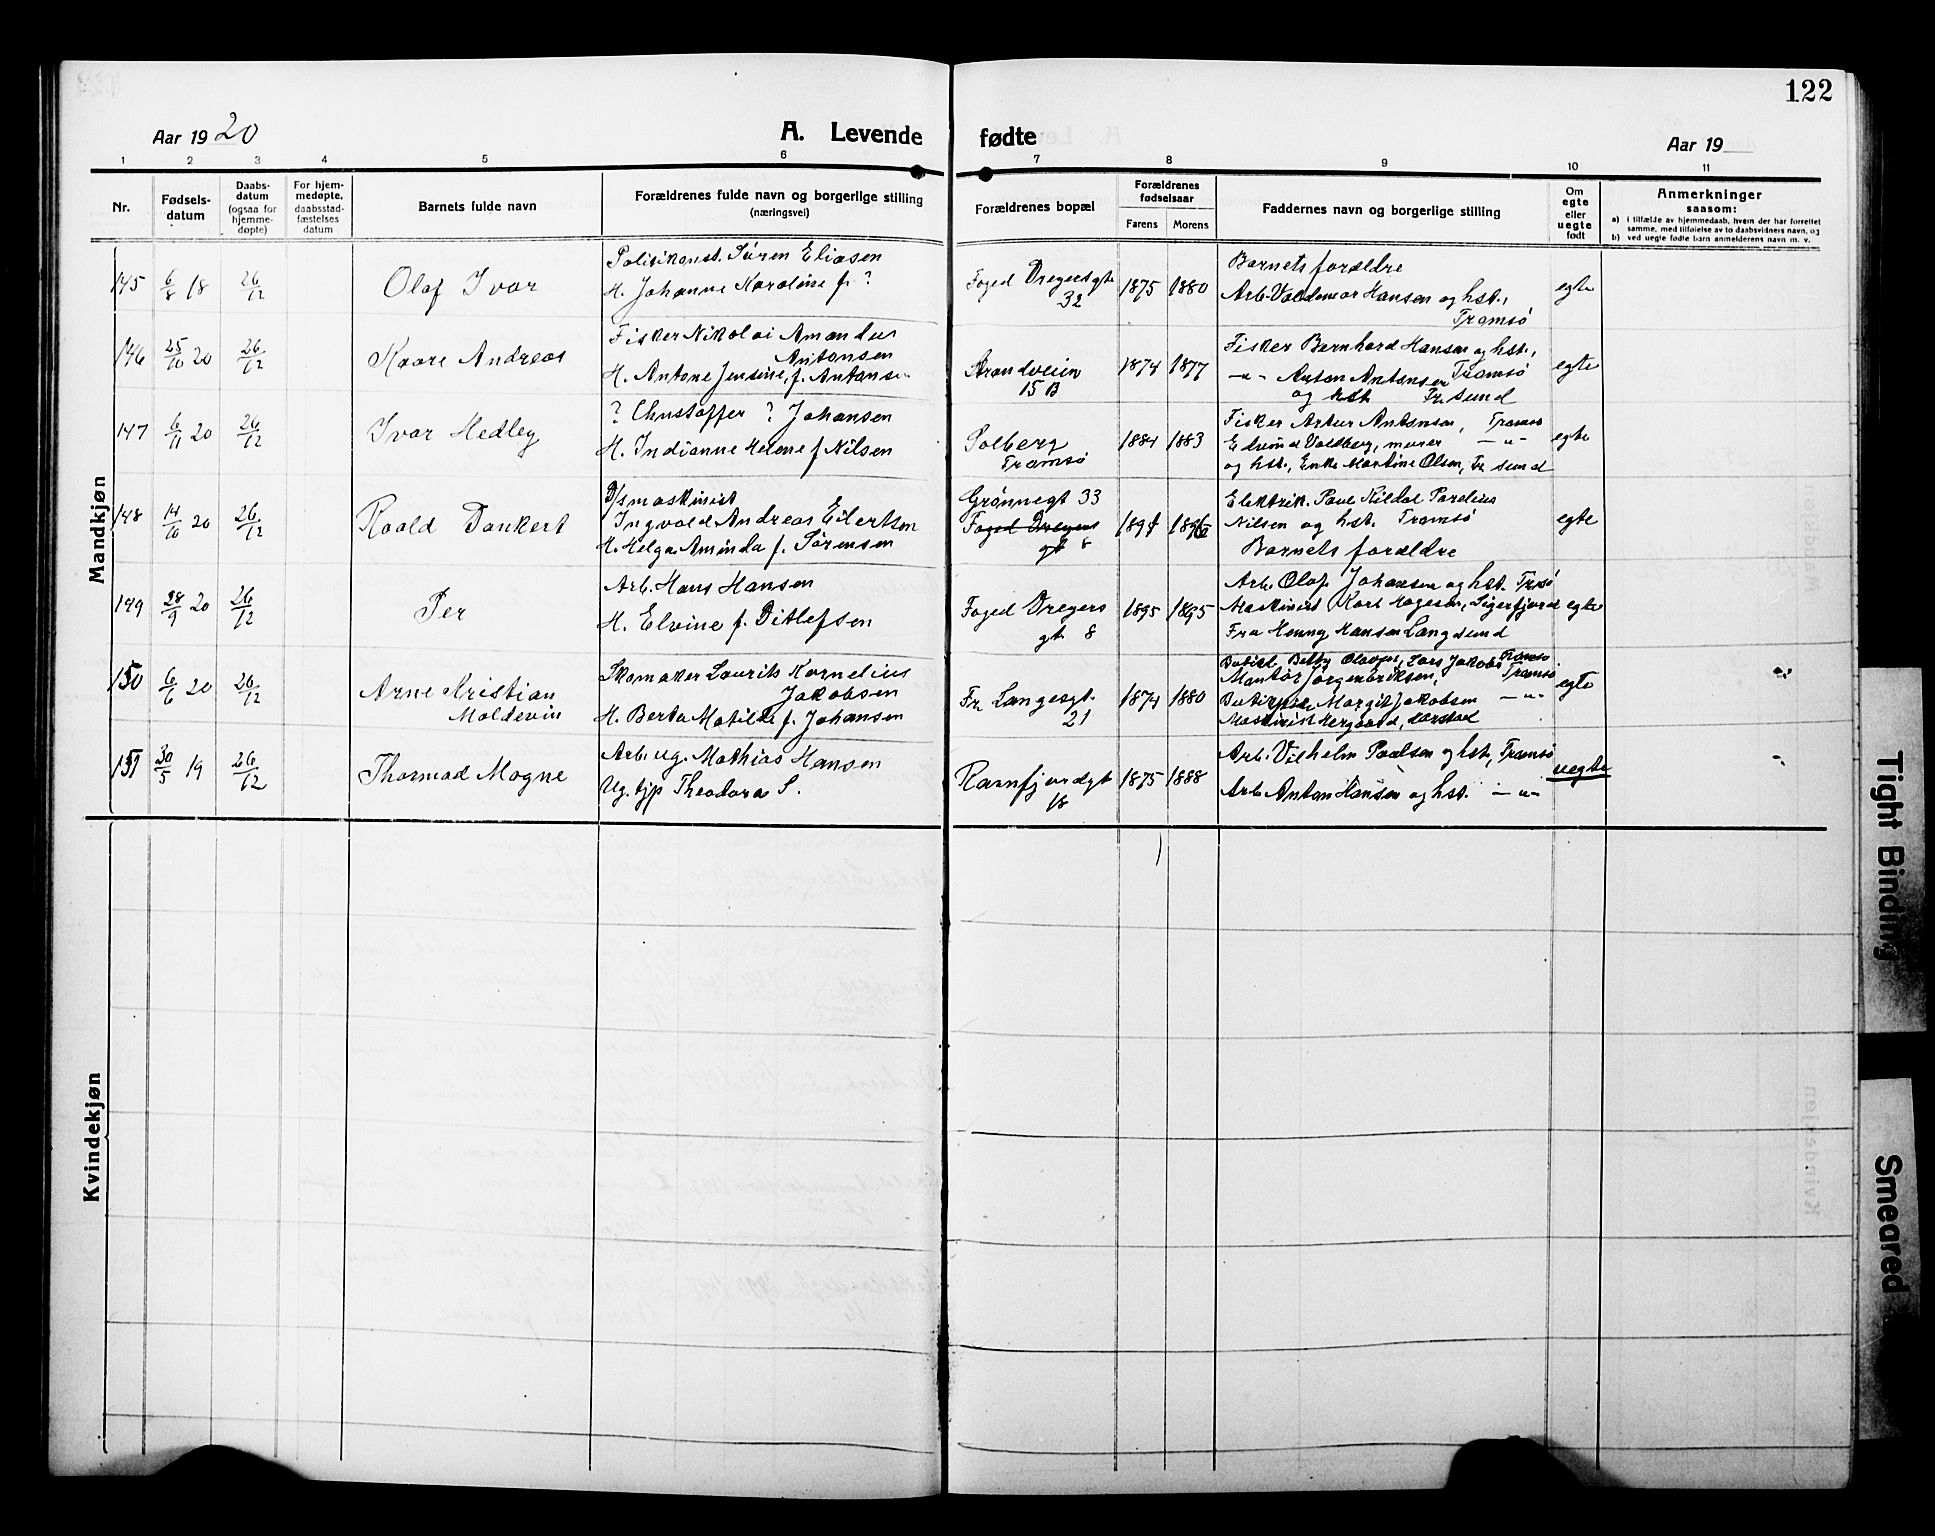 122
Aar 1920
A. Levende
fødte
Aar 19
1 2 3 4 5 6 7 8 9 10 11
Nr.
Fødsels-
datum
Daabs-
datum
(ogsaa for
hjemme-
døpte)
For hjem-
medøpte,
daabsstad-
fæstelses
datum
Barnets fulde navn
Forældrenes fulde navn og borgerlige stilling
(næringsvei)
Forældrenes bopæl
Forældrenes
fødselsaar
Farens Morens
Faddernes navn og borgerlige stilling
Om
egte
eller
uegte
født
Anmerkninger
saasom:
a) i tilfælde av hjemmedaab, hvem der har forrettet
samme, med tilføielse av to daabsvidners navn, og
b) ved uegte fødte barn anmelderens navn m. v.
Mandkjøn
145 6/8 18 26/12 Olaf Ivar
Politikonst. Søren Eliasen
H. Johanne Karoline f. ?
Foged Dreyersgt
32
1875 1880
Barnets forældre
Arb. Valdemar Hansen og hst.,
Tromsø
egte
146 25/10 20 26/12 Kaare Andreas
Fisker Nikolai Amandus
Antonsen
H. Antone Jensine, f. Antonsen
Strandveien
15 B
1874 1877
Fisker Bernhard Hansen og hst.,
Tromsø
-"- Anton Antonsen
og hst. Tr. sund
egte
147 6/11 20 26/12 Ivar Hedley
? Christoffer ? Johansen
H. Indianne Helene f. Nilsen
Solberg
Tromsø
1884 1883
Fisker Artur Antonsen, Tromsø
Edvind Valdberg, murer -"-
og hst., Enke Martine Olsen, Tr. sund
egte
148 14/10 20 26/12 Roald Dankert
D/s maskinist
Ingvald Andreas Eilertsen
H. Helga Aminda f. Sørensen
Grønnegt 33
Foged Dreyers
gt 8
1894 1896
Elektrik. Paul Kildal Parelius
Nilsen og hst. Tromsø
Barnets forældre
egte
149 28/9 20 26/12 Per
Arb. Hans Hansen
H. Elvine f. Ditlefsen
Foged Dreyers
gt. 8
1895 1895
Arb. Olaf Johansen og hst. Tromsø
Maskinist Karl Hagesen, Sigerfjord
Fru Henny Hansen Langsund
egte
150 6/6 20 26/12 Arne Kristian
Moldevin
Skomaker Laurits Kornelius
Jakobsen
H. Berta Matilde f. Johansen
Fr. Langesgt.
21
1874 1880
Betty Lars Jakobs Tromsø
Montør Jørgen Eriksen, Tromsø
Margit Jakobsen -"-
Maskinist Harstad
egte
151 30/5 19 26/12 Thormod Magne
Arb. ug. Mathias Hansen
Ug. tjp Theodora S.
Ramfjordgt
18
1875 1888
Arb. Vilhelm Paalsen og hst., Tromsø
Arb. Anton Hansen og hst. -"-
uegte
Kvindekjøn
Tight Binding
Smeared